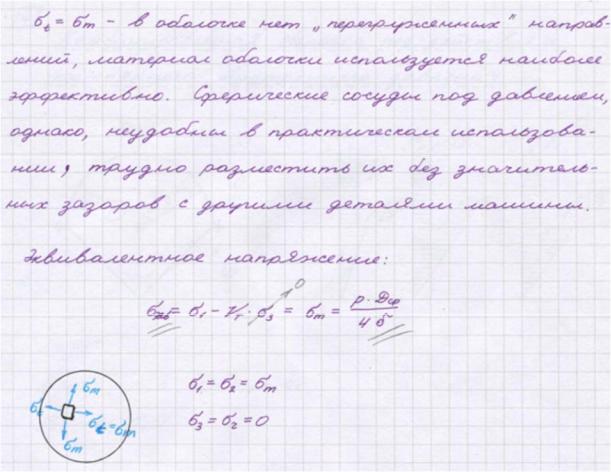 σt = σm - в оболочке нет „перегруженных" направ-
лений, материал оболочки используется наиболее
эффективно. Сферические сосуды под давлением,
однако, неудобны в практическом использова-
нии, трудно разместить их без значитель-
ных зазоров с другими деталями машины.
Эквивалентное напряжение:
σэкв = σ1 - νт · σ3 = σm = p · Dср / 4δ
0
σ1 = σ2 = σm
σ3 = σz = 0
σm
σt
σt = σm
σm